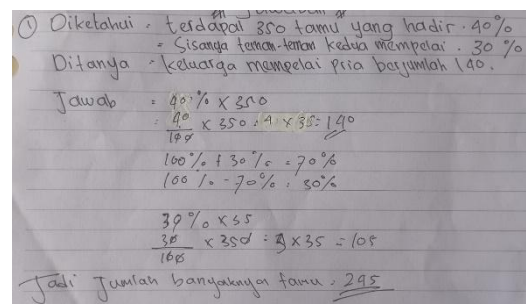 Jawaban
① Diketahui : terdapat 350 tamu yang hadir. 40%
= Sisanya teman-teman kedua mempelai. 30%
Ditanya : keluarga mempelai pria berjumlah 140.
Jawab = 40% x 350
: 40/100 x 350 : 4 x 35 = 140
100% + 30% = 70%
100% - 70% : 30%
30% x 35
30/100 x 350 = 3 x 35 = 105
Jadi Jumlah banyaknya tamu : 295